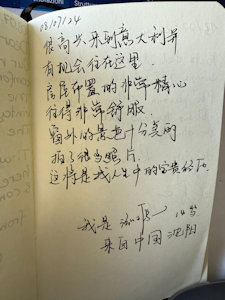 08/07/24
很高兴来到意大利并
有机会住在这里.
房屋布置的非常精心
住得非常舒服.
窗外的景色十分美丽
拍了很多照片.
这将是我人生中的宝贵经历.
我是
来自中国 沈阳